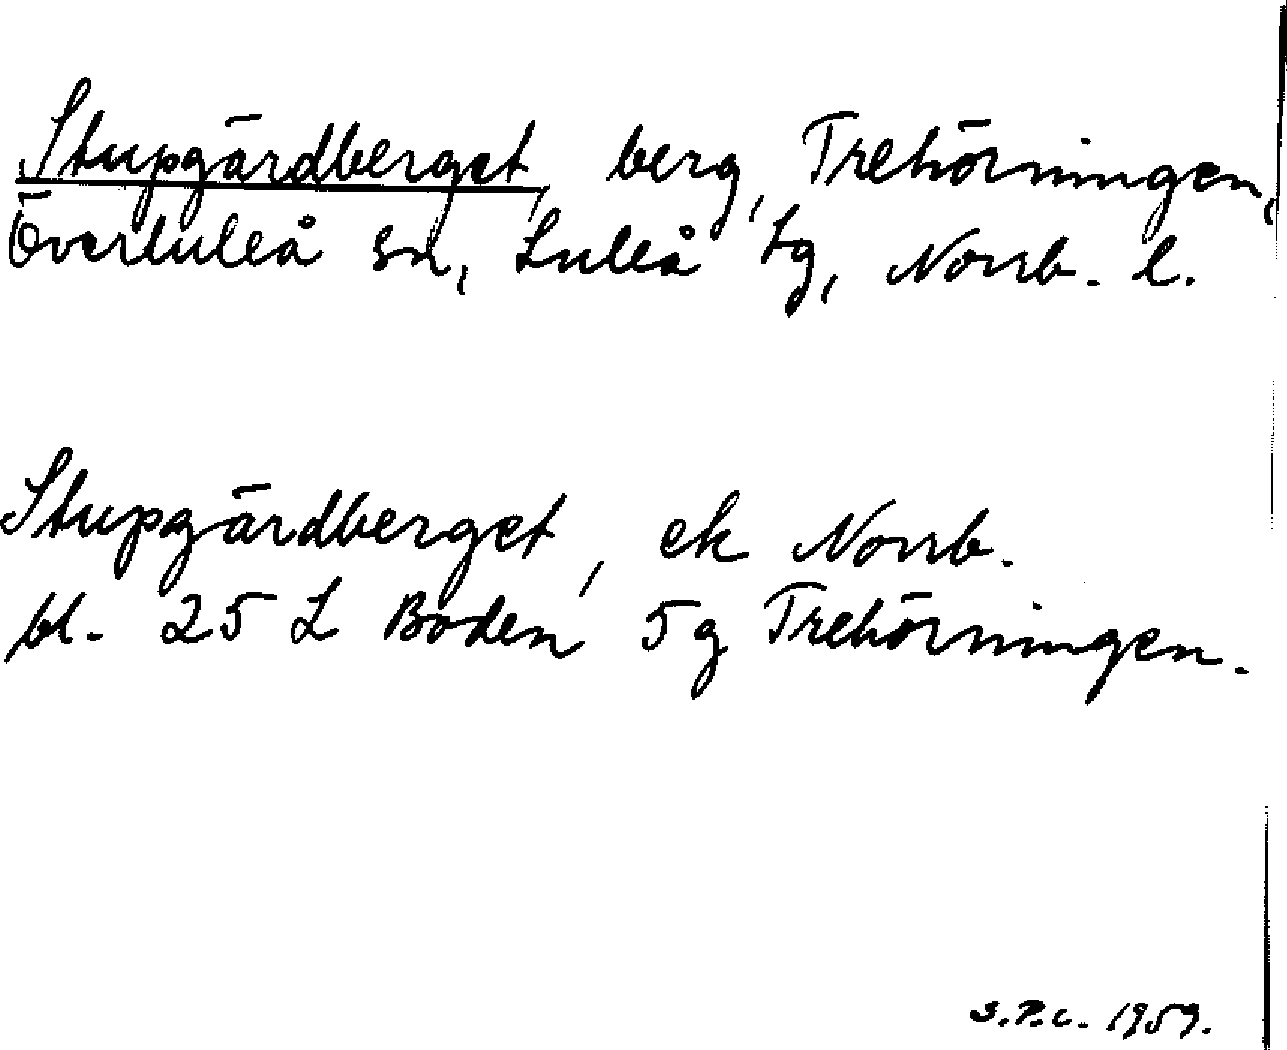 Stupgärdberget, berg, Trehörningen,
Överluleå sn, Luleå tg, Norrb. l.
Stupgärdberget, ek Norrb.
bl. 25 L Boden 5g Trehörningen.
S.P.C. 1959.